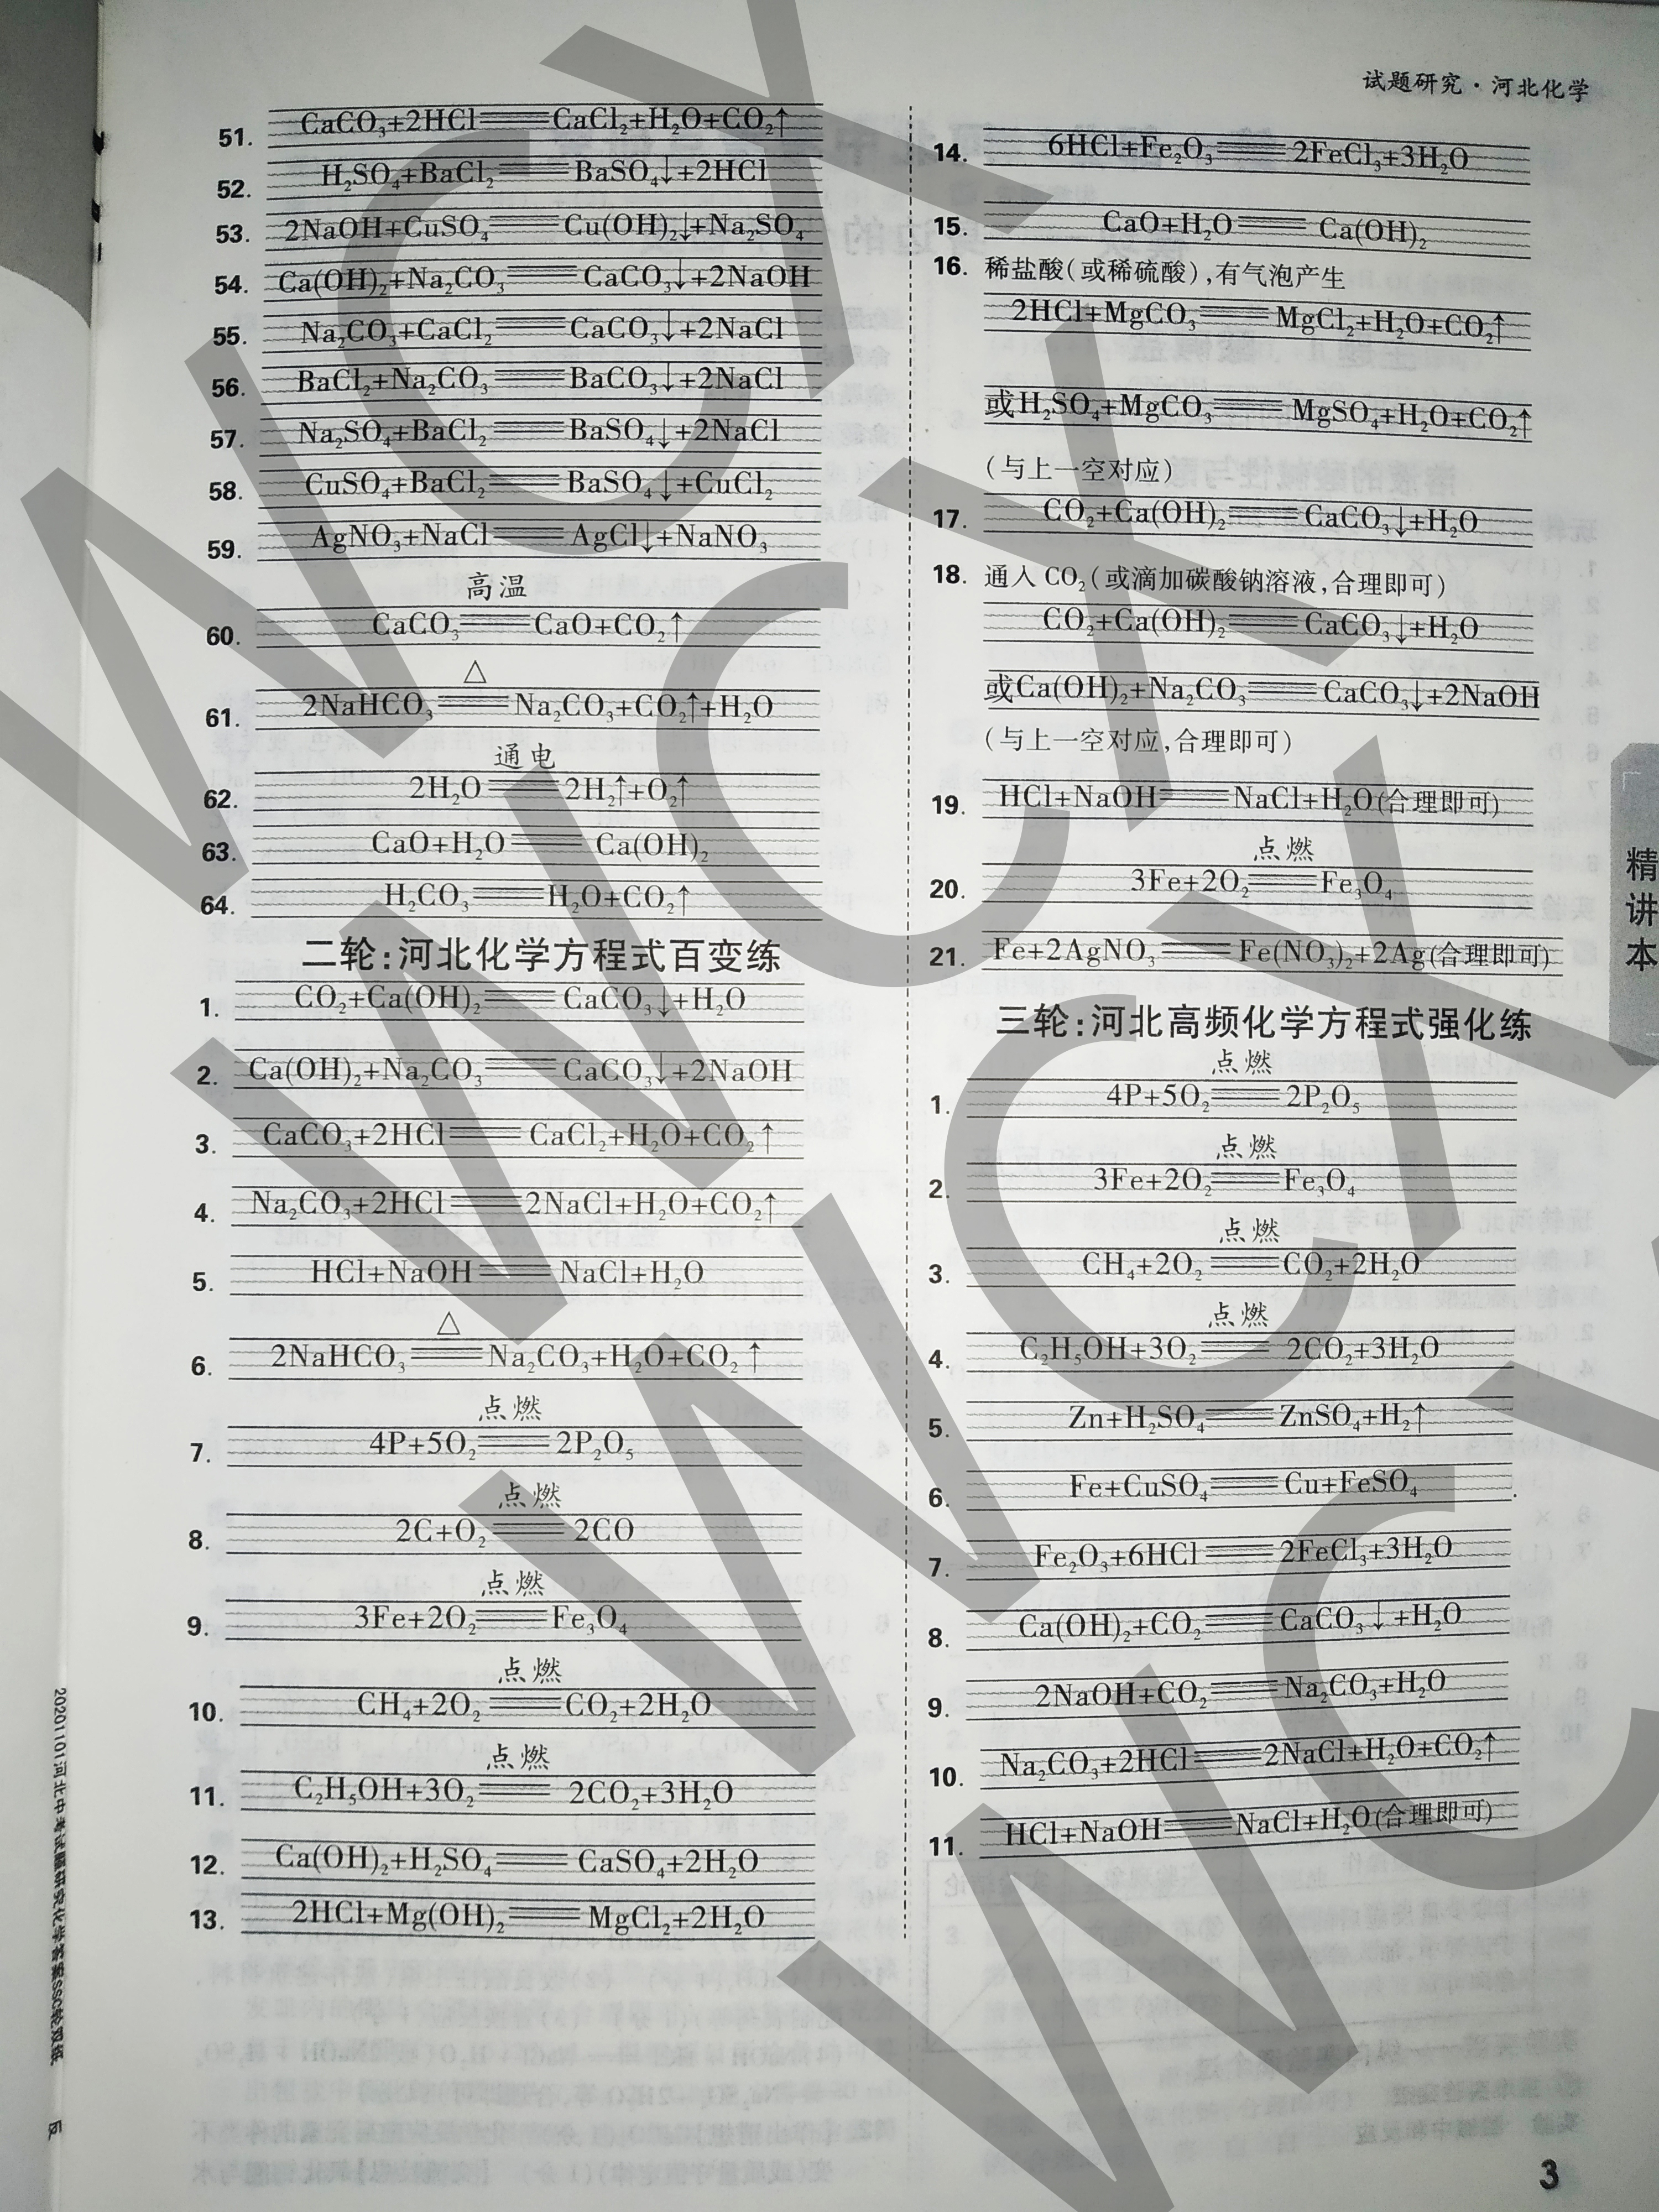 试题研究·河北化学
51. CaCO₃+2HCl═══CaCl₂+H₂O+CO₂↑
52. H₂SO₄+BaCl₂═══BaSO₄↓+2HCl
53. 2NaOH+CuSO₄═══Cu(OH)₂↓+Na₂SO₄
54. Ca(OH)₂+Na₂CO₃═══CaCO₃↓+2NaOH
55. Na₂CO₃+CaCl₂═══CaCO₃↓+2NaCl
56. BaCl₂+Na₂CO₃═══BaCO₃↓+2NaCl
57. Na₂SO₄+BaCl₂═══BaSO₄↓+2NaCl
58. CuSO₄+BaCl₂═══BaSO₄↓+CuCl₂
59. AgNO₃+NaCl═══AgCl↓+NaNO₃
高温
60. CaCO₃═══CaO+CO₂↑
△
61. 2NaHCO₃═══Na₂CO₃+CO₂↑+H₂O
通电
62. 2H₂O═══2H₂↑+O₂↑
63. CaO+H₂O═══Ca(OH)₂
64. H₂CO₃═══H₂O+CO₂↑
二轮:河北化学方程式百变练
1. CO₂+Ca(OH)₂═══CaCO₃↓+H₂O
2. Ca(OH)₂+Na₂CO₃═══CaCO₃↓+2NaOH
3. CaCO₃+2HCl═══CaCl₂+H₂O+CO₂↑
4. Na₂CO₃+2HCl═══2NaCl+H₂O+CO₂↑
5. HCl+NaOH═══NaCl+H₂O
△
6. 2NaHCO₃═══Na₂CO₃+H₂O+CO₂↑
点燃
7. 4P+5O₂═══2P₂O₅
点燃
8. 2C+O₂═══2CO
点燃
9. 3Fe+2O₂═══Fe₃O₄
点燃
10. CH₄+2O₂═══CO₂+2H₂O
点燃
11. C₂H₅OH+3O₂═══2CO₂+3H₂O
12. Ca(OH)₂+H₂SO₄═══CaSO₄+2H₂O
13. 2HCl+Mg(OH)₂═══MgCl₂+2H₂O
14. 6HCl+Fe₂O₃═══2FeCl₃+3H₂O
15. CaO+H₂O═══Ca(OH)₂
16. 稀盐酸(或稀硫酸),有气泡产生
2HCl+MgCO₃═══MgCl₂+H₂O+CO₂↑
或H₂SO₄+MgCO₃═══MgSO₄+H₂O+CO₂↑
(与上一空对应)
17. CO₂+Ca(OH)₂═══CaCO₃↓+H₂O
18. 通入CO₂(或滴加碳酸钠溶液,合理即可)
CO₂+Ca(OH)₂═══CaCO₃↓+H₂O
或Ca(OH)₂+Na₂CO₃═══CaCO₃↓+2NaOH
(与上一空对应,合理即可)
19. HCl+NaOH═══NaCl+H₂O(合理即可)
点燃
20. 3Fe+2O₂═══Fe₃O₄
21. Fe+2AgNO₃═══Fe(NO₃)₂+2Ag(合理即可)
三轮:河北高频化学方程式强化练
点燃
1. 4P+5O₂═══2P₂O₅
点燃
2. 3Fe+2O₂═══Fe₃O₄
点燃
3. CH₄+2O₂═══CO₂+2H₂O
点燃
4. C₂H₅OH+3O₂═══2CO₂+3H₂O
5. Zn+H₂SO₄═══ZnSO₄+H₂↑
6. Fe+CuSO₄═══Cu+FeSO₄
7. Fe₂O₃+6HCl═══2FeCl₃+3H₂O
8. Ca(OH)₂+CO₂═══CaCO₃↓+H₂O
9. 2NaOH+CO₂═══Na₂CO₃+H₂O
10. Na₂CO₃+2HCl═══2NaCl+H₂O+CO₂↑
11. HCl+NaOH═══NaCl+H₂O(合理即可)
精讲本
20201101河北中考试题研究化学答案SSC轮双纸 反
3
WCXY
WCXY
WCXY